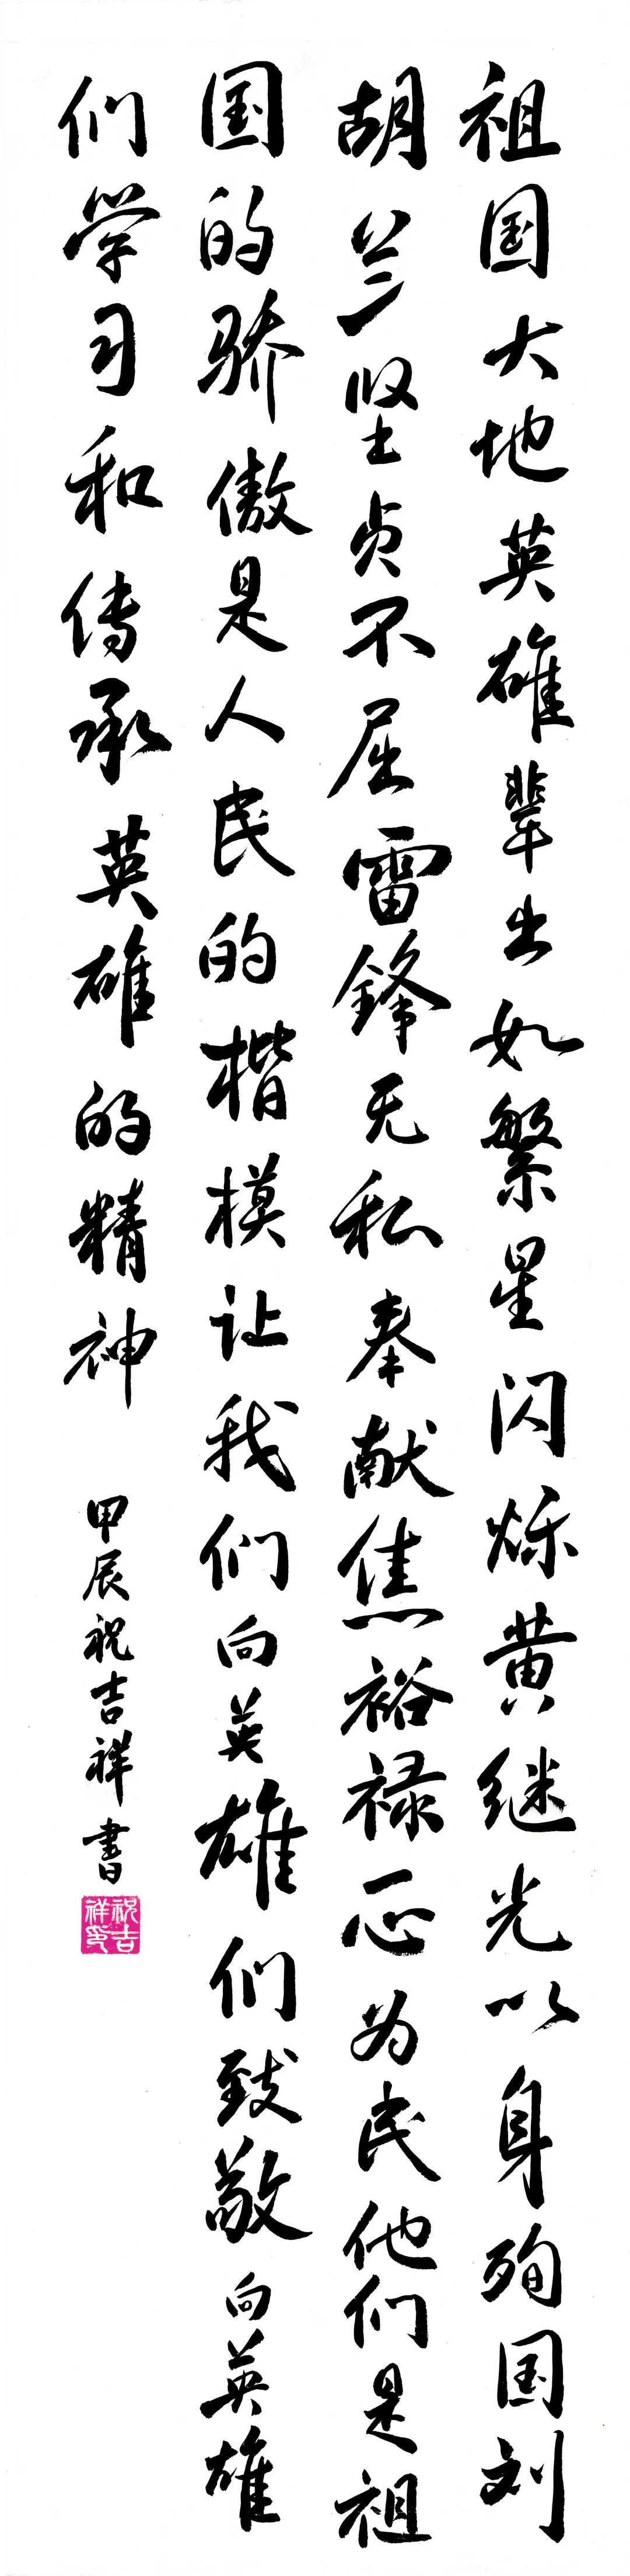 祖国大地英雄辈出如繁星闪烁黄继光以身殉国刘
胡兰坚贞不屈雷锋无私奉献焦裕禄一心为民他们是祖
国的骄傲是人民的楷模让我们向英雄们致敬向英雄
们学习和传承英雄的精神
甲辰祝吉祥書
祝吉祥印